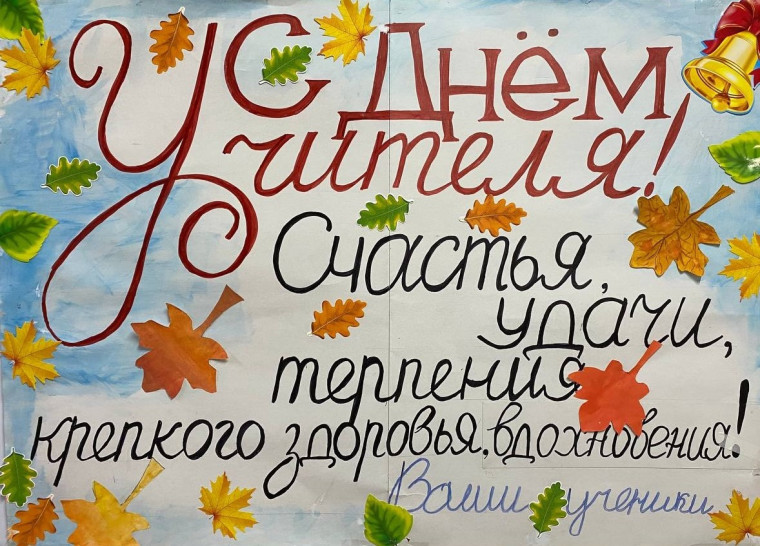 С Днём
Учителя!
Счастья,
удачи,
терпения
крепкого здоровья, вдохновения!
Ваши ученики